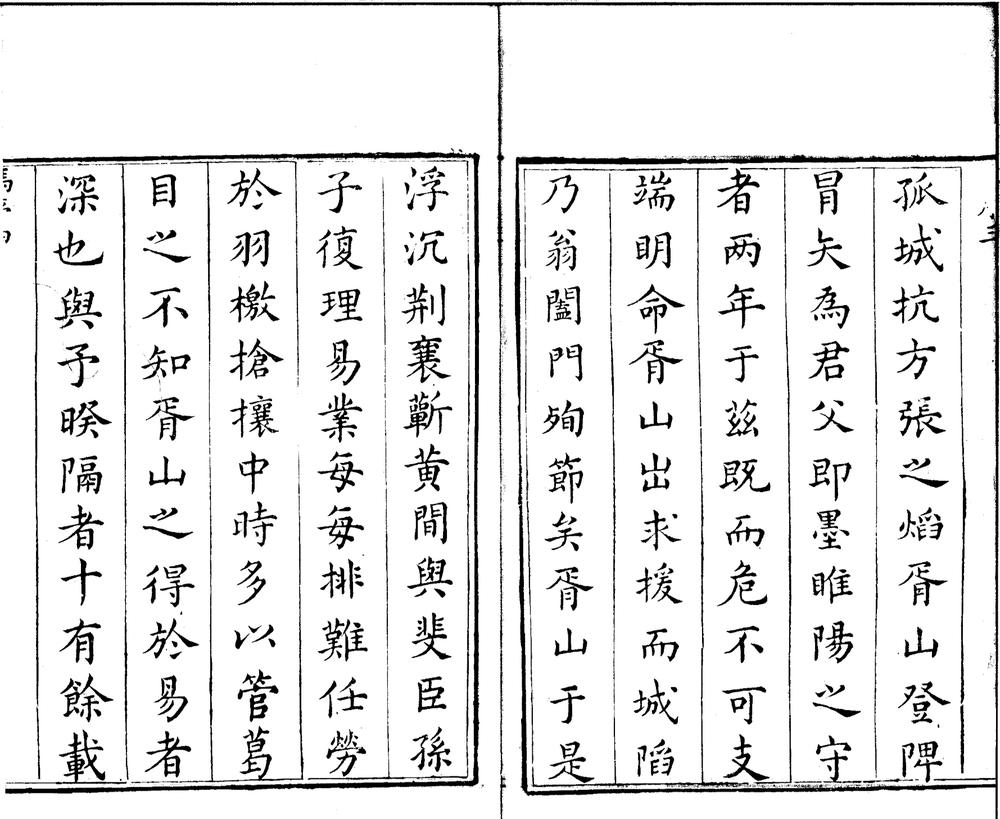 孤城抗方張之熖胥山登陴
冒矢為君父即墨睢陽之守
者两年于茲既而危不可支
端明命胥山出求援而城䧟
乃翁闔門殉節矣胥山于是
浮沉荆襄蘄黄間與斐臣孫
子復理易業每每排難任勞
於羽檄搶攘中時多以管葛
目之不知胥山之得於易者
深也與予暌隔者十有餘載